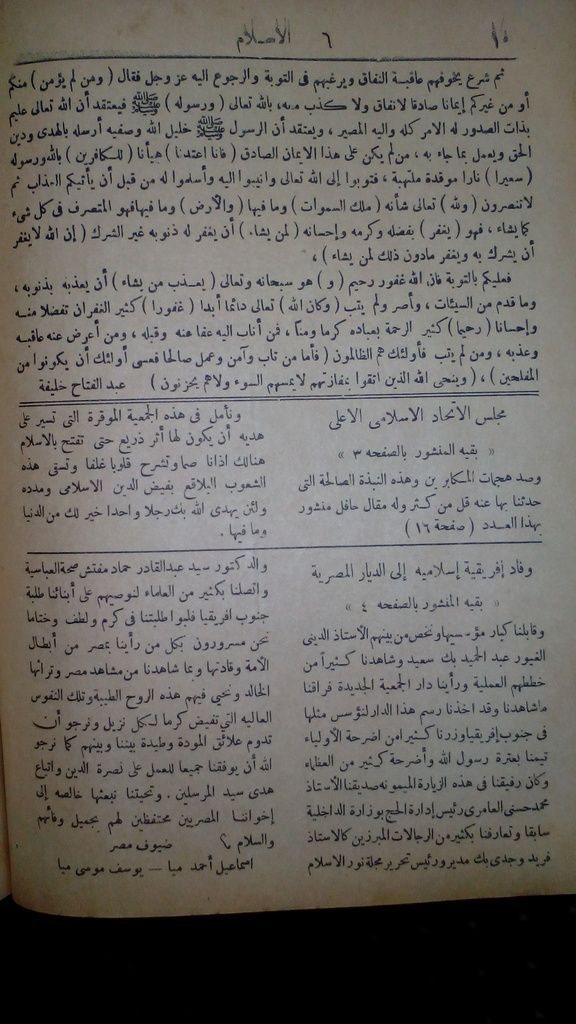 ٦ الاسلام
ثم شرع يخوفهم عاقبة النفاق ويرغبهم فى التوبة والرجوع اليه عز وجل فقال ( ومن لم يؤمن ) منكم
أو من غيركم إيمانا صادقا لانفاق ولا كذب منه، بالله تعالى ( ورسوله ) ﷺ فيعتقد أن الله تعالى عليم
بذات الصدور له الامر كله واليه المصير ، ويعتقد أن الرسول ﷺ خليل الله وصفيه أرسله بالهدى ودين
الحق ويعمل بما جاء به ، من لم يكن على هذا الايمان الصادق ( فانا اعتدنا ) هيأنا ( للكافرين ) بالله ورسوله
( سعيرا ) نارا موقدة ملتهبة ، فتوبوا إلى الله تعالى وانيبوا اليه وأسلموا له من قبل أن يأتيكم العذاب ثم
لا تنصرون ( ولله ) تعالى شأنه ( ملك السموات ) وما فيها ( والأرض ) وما فيها فهو المتصرف فى كل شىء
كما يشاء ، فهو ( يغفر ) بفضله وكرمه وإحسانه ( لمن يشاء ) أن يغفر له ذنوبه غير الشرك ( إن الله لا يغفر
أن يشرك به ويغفر مادون ذلك لمن يشاء ) ،
فعليكم بالتوبة فان الله غفور رحيم ( و ) هو سبحانه وتعالى ( يعذب من يشاء ) أن يعذبه بذنوبه ،
وما قدم من السيئات ، وأصر ولم يتب ( وكان الله ) تعالى دائما أبدا ( غفورا ) كثير الغفران تفضلا منه
وإحسانا ( رحيما ) كثير الرحمة بعباده كرما ومنا ، فمن أناب اليه عفا عنه وقبله ، ومن أعرض عنه عاقبه
وعذبه ، ومن لم يتب فأولئك هم الظالمون ( فأما من تاب وآمن وعمل صالحا فعسى أولئك أن يكونوا من
المفلحين ) ، ( وينجى الله الذين اتقوا بمفازتهم لا يمسهم السوء ولا هم يحزنون ) عبد الفتاح خليفة
مجلس الاتحاد الاسلامى الاعلى
« بقيه المنشور بالصفحه ٣ »
وصد هجمات المكابرين وهذه النبذة الصالحة التى
حدثنا بها عنه قل من كثر وله مقال حافل منشور
بهذا العدد ( صفحة ١٦ )
ونأمل فى هذه الجمعية الموقرة التى تسير على
هديه أن يكون لها أثر ذريع حتى تفتح بالاسلام
هنالك اذانا صما وتشرح قلوبا غلفا وتسقى هذه
الشعوب البلاقع بفيض الدين الاسلامى ومدده
ولئن يهدى الله بك رجلا واحدا خير لك من الدنيا
وما فيها .
وفاد إفريقية إسلاميه إلى الديار المصرية
« بقيه المنشور بالصفحه ٤ »
وقابلنا كبار مؤسسيها ونخص من بينهم الاستاذ الدينى
الغيور عبد الحميد بك سعيد وشاهدنا كثيراً من
خططهم العملية ورأينا دار الجمعية الجديدة فراقنا
ماشاهدنا وقد اخذنا رسم هذا الدار لنؤسس مثلها
فى جنوب إفريقيا وزرنا كثير امن اضرحة الأولياء
تيمنا بعترة رسول الله وأضرحة كثير من العظماء
وكان رفيقنا فى هذه الزيارة الميمونه صديقنا الاستاذ
محمد حسنى العامرى رئيس إدارة الحج بوزارة الداخلية
سابقا وتعارفنا بكثير من الرجالات المبرزين كالاستاذ
فريد وجدى بك مدير ورئيس تحرير مجلة نور الاسلام
والدكتور سيد عبد القادر حماد مفتش صحة العباسية
واتصلنا بكثير من العلماء لنوصيهم على أبنائنا طلبة
جنوب افريقيا فلبوا طلبتنا فى كرم ولطف وختاما
نحن مسرورون بكل من رأينا بمصر من أبطال
الأمة وقادتها وبما شاهدنا من مشاهد مصر وتراثها
الخالد ونحيى فيهم هذه الروح الطيبة وتلك النفوس
العاليه التى تفيض كرما لكل نزيل ونرجو أن
تدوم علائق المودة وطيدة بيننا وبينهم كما نرجو
الله أن يوفقنا جميعا للعمل على نصرة الدين واتباع
هدى سيد المرسلين . وتحيتنا نبعثها خالصه إلى
إخواننا المصريين محتفظين لهم بجميل وفائهم
والسلام ضيوف مصر
اسماعيل أحمد ميا — يوسف موسى ميا